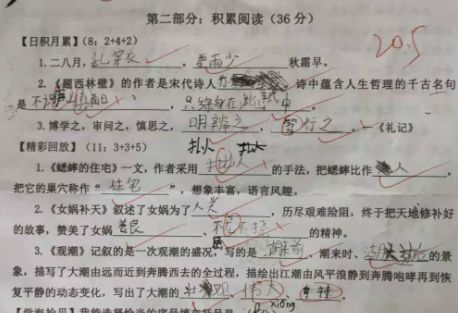 第二部分：积累阅读（36分）
20.5
【日积月累】（8：2+4+2）
1. 二八月，乱穿衣。 秋霜早。
2. 《题西林壁》的作者是宋代诗人 ，诗中蕴含人生哲理的千古名句
是 不识庐山真面目，只缘身在此山中
3. 博学之，审问之，慎思之，明辨之，笃行之。《礼记》
【精彩回放】（11：3+3+5）
1. 《蟋蟀的住宅》一文，作者采用 的手法，把蟋蟀比作 人，
把它的巢穴称作“住宅”，想象丰富，语言风趣。
2. 《女娲补天》叙述了女娲为了人类，历尽艰难险阻，终于把天地修补好
的故事，赞美了女娲善良、 的精神。
3. 《观潮》记叙的是一次观潮的盛况，写的是 、潮来时、 的景
象，描写了大潮由远而近到奔腾西去的全过程，描绘出江潮由风平浪静到奔腾咆哮再到恢
复平静的动态变化，写出了大潮的壮观、伟大、
xióng